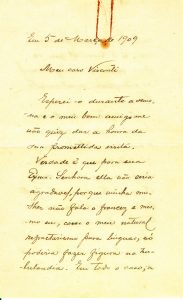 Em 5 de Março de 1909
Meu caro Visconti
Esperei-o durante a sema-
na e o meu bom amigo me
não quiz dar a honra da
sua promettida visita.
Verdade é que para sua
Exma. Senhora ella não seria
agradavel, porque minha mu-
lher não fala o francez e, mes-
mo eu, com o meu natural
para linguas, só
poderia fazer figura na
Em todo o caso, a